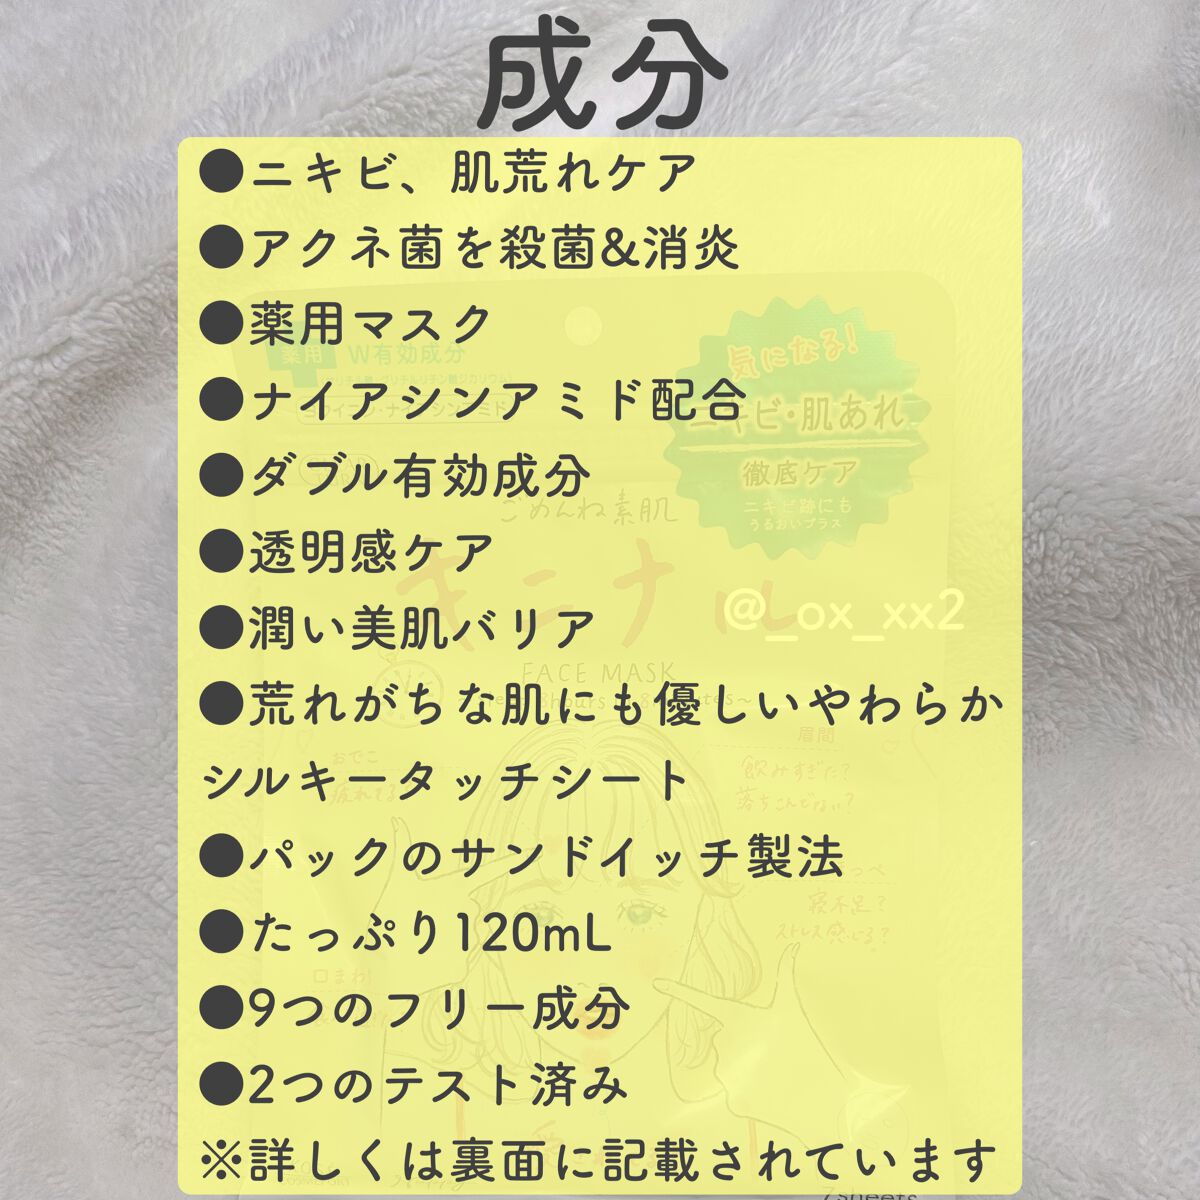 成分
●ニキビ、肌荒れケア
●アクネ菌を殺菌&消炎
●薬用マスク
薬用
W有効成分
気になる!
●ナイアシンアミド配合
ニキビ・肌あれ
●ダブル有効成分
徹底ケア
ニキビ跡にも
うるおいプラス
ごめんね素肌
●透明感ケア
キニナル
@_ox_xx2
●潤い美肌バリア
FACE MASK
●荒れがちな肌にも優しいやわらか
眉間
おでこ
シルキータッチシート
飲みすぎた?
疲れてる
落ちこんでない?
●パックのサンドイッチ製法
寝不足?
●たっぷり120mL
ストレス感じる?
口まわり
●9つのフリー成分
●2つのテスト済み
※詳しくは裏面に記載されています
7sheets